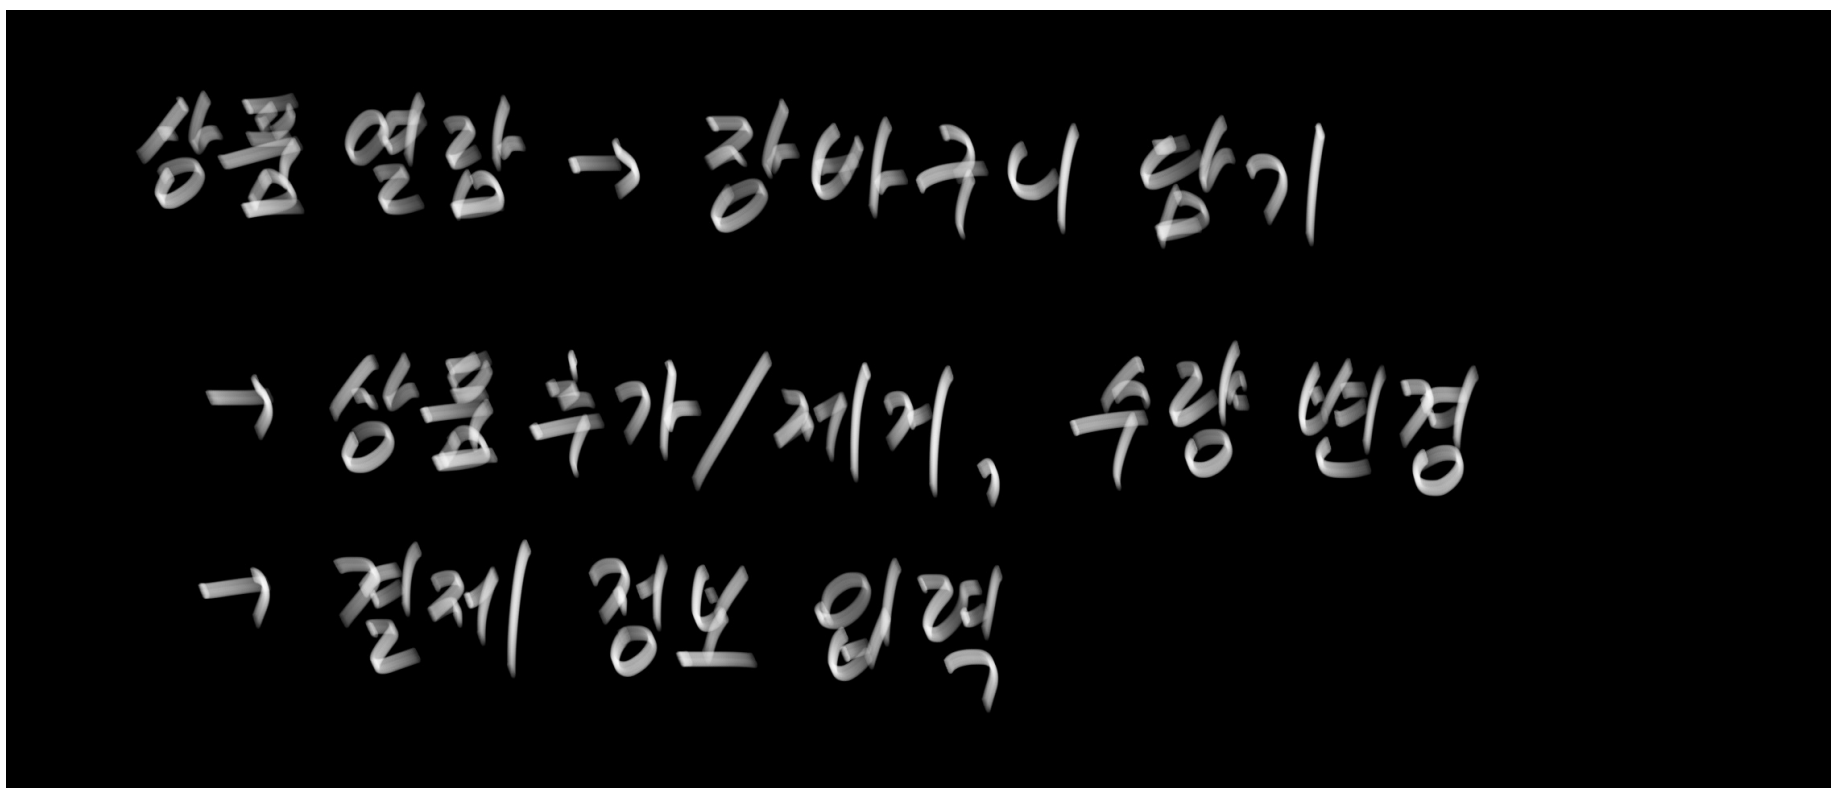 상품 열람 → 장바구니 담기
→ 상품 추가/제거, 수량 변경
→ 결제 정보 입력